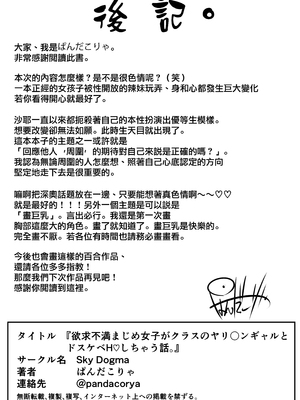 後記。
大家、我是ぱんだこりゃ。
非常感謝閱讀此書。
本次的內容怎麼樣?是不是很色情呢?(笑)
一本正經的女孩子被性開放的辣妹玩弄、身和心都發生巨大變化
若你看得開心就最好了。
沙耶一直以來都扼殺著自己的本性扮演出優等生模樣。
想要改變卻無法如願。此時生天目就出現了。
這本本子的主題之一或許就是
「回應他人﹙周圍﹚的期待對自己來說是正確的嗎?」。
我認為無論周圍的人怎麼想、照著自己心底認定的方向
堅定地走下去是很重要的。
嘛啊把深奧話題放在一邊、只要能想著真色情啊~~♡♡
就是最好的!!!另外一個主題是可以說是
「畫巨乳」。言出必行。我還是第一次畫
胸部這麼大的角色。畫了就知道了。畫巨乳是快樂的。
完全畫不厭。若各位有時間也請務必畫畫看。
今後也會畫這樣的百合作品、
還請各位多多指教!
那麼我們下次作品再見吧!
感謝你閱讀到這裡。
ぱんだー
タイトル 『欲求不満まじめ女子がクラスのヤリ〇ンギャルと
ドスケベH♡しちゃう話。』
サークル名 Sky Dogma
著者 ぱんだこりゃ
連絡先 @pandacorya
無断転載、複製、複写、インターネット上への掲載を禁ずる。